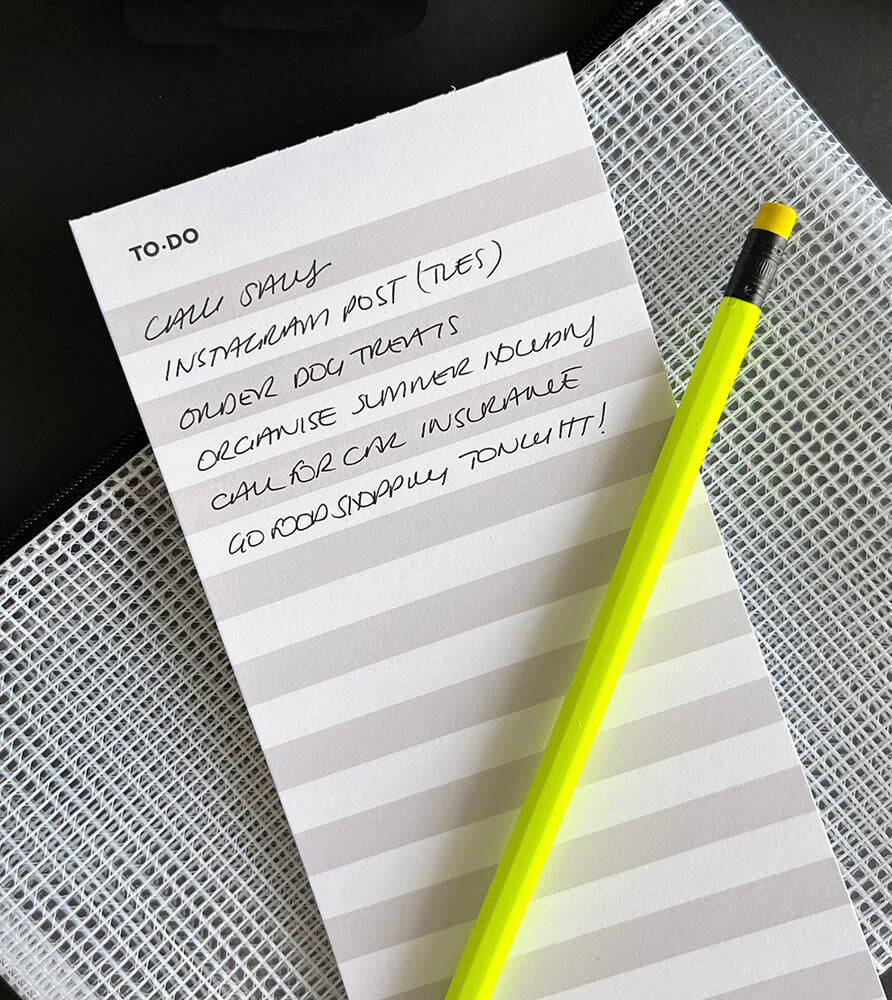 TO·DO
CALL SALLY
INSTAGRAM POST (TUES)
ORDER DOG TREATS
ORGANISE SUMMER HOLIDAY
CALL FOR CAR INSURANCE
GO FOOD SHOPPING TONIGHT!